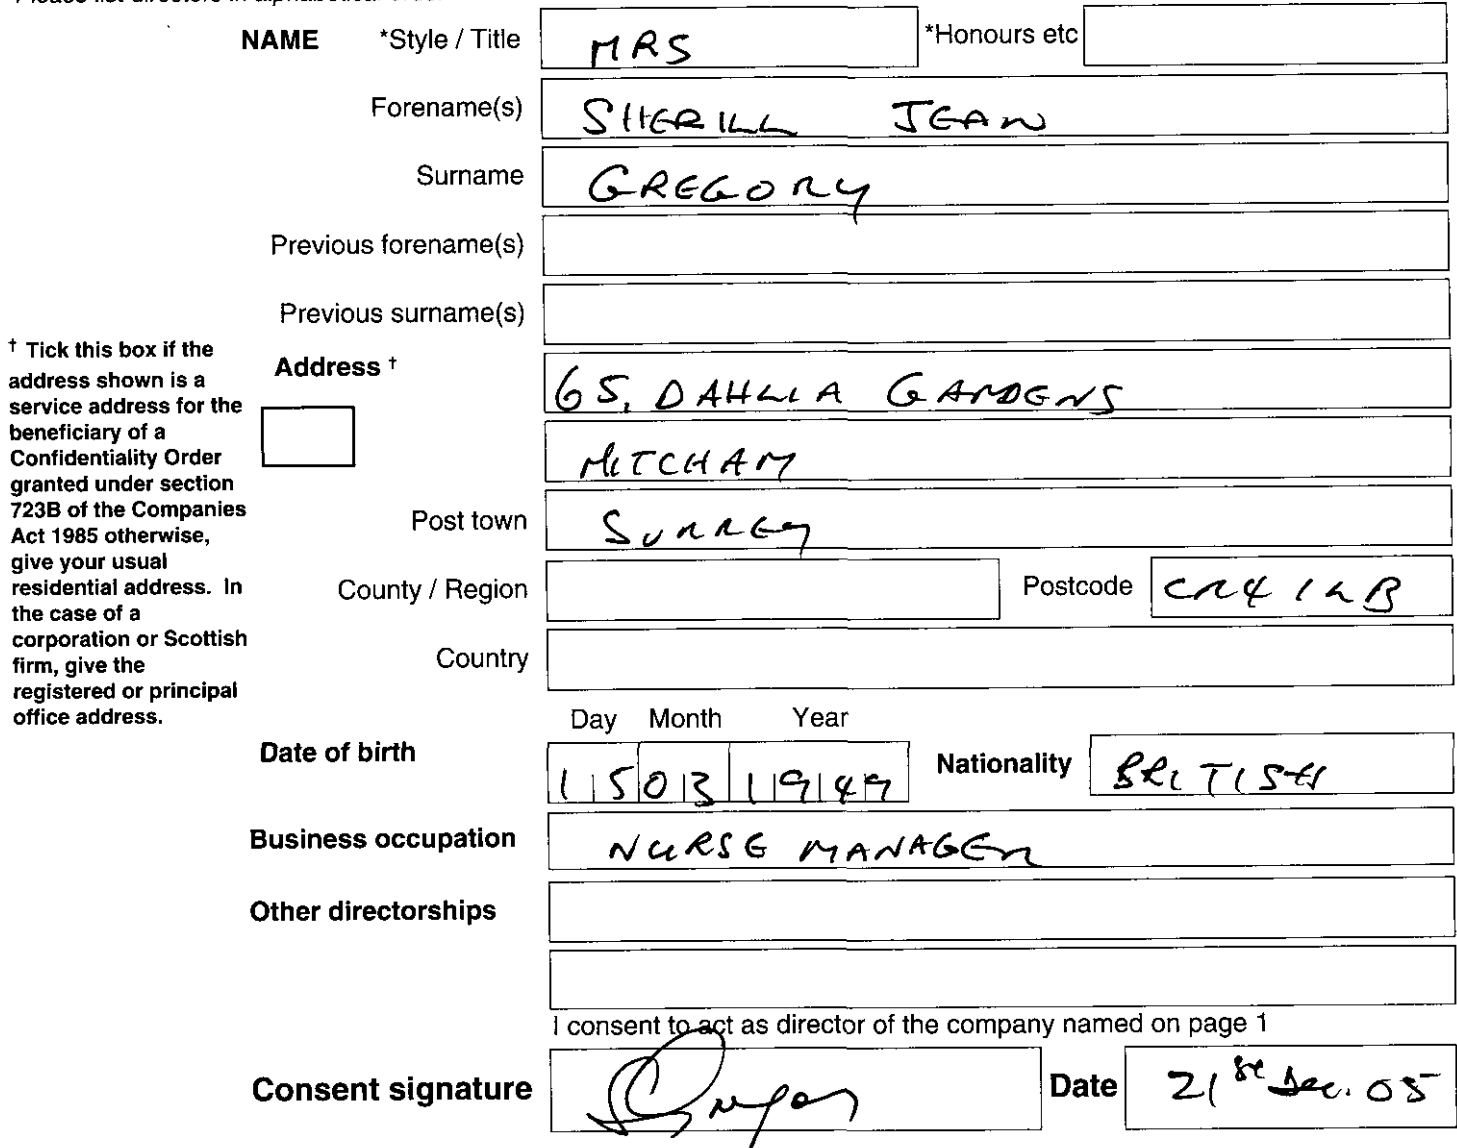 NAME *Style / Title MRS *Honours etc
Forename(s) SHERILL JEAN
Surname GREGORY
Previous forename(s)
Previous surname(s)
† Tick this box if the
address shown is a
service address for the
beneficiary of a
Confidentiality Order
granted under section
723B of the Companies
Act 1985 otherwise,
give your usual
residential address. In
the case of a
corporation or Scottish
firm, give the
registered or principal
office address.
Address † 65, DAHLIA GARDENS
MITCHAM
Post town SURREY
County / Region Postcode CR4 1LB
Country
Day Month Year
Date of birth 15 03 1949 Nationality BRITISH
Business occupation NURSE MANAGER
Other directorships
I consent to act as director of the company named on page 1
Consent signature Date 21st Dec. 05